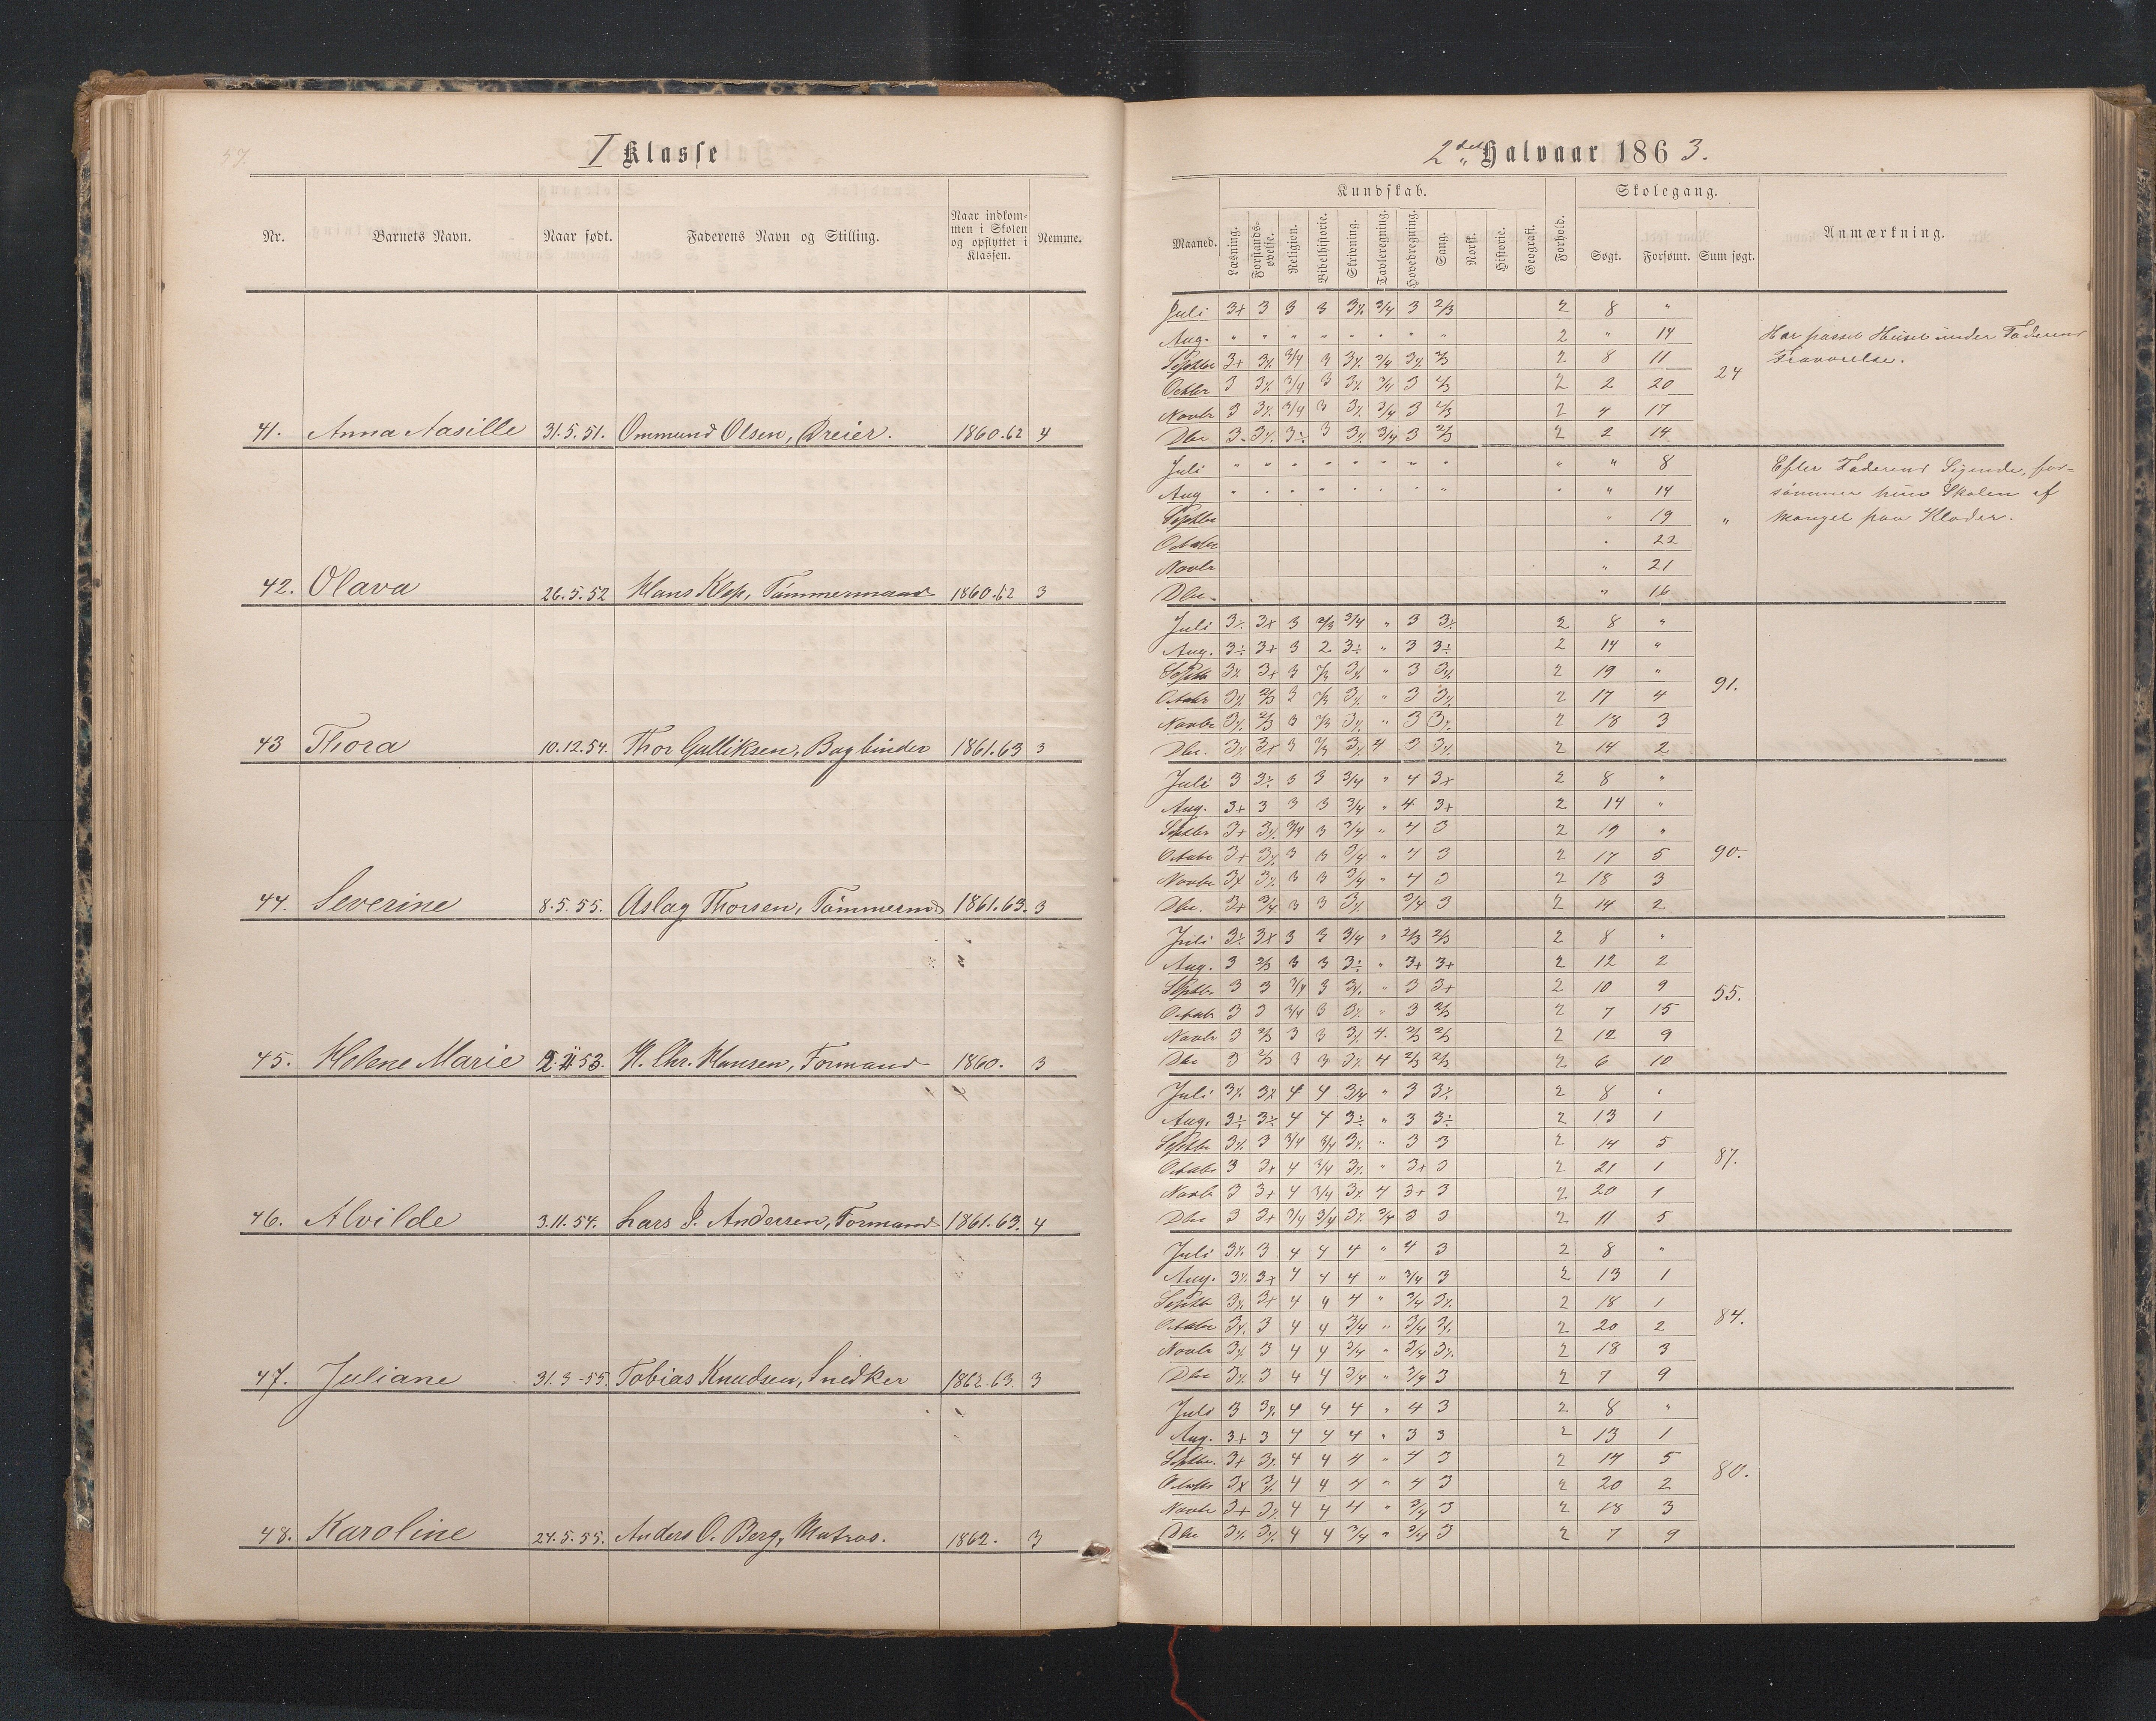 57.
I Klasse
Nr. Barnets Navn. Naar født. Faderens Navn og Stilling. Naar indkommen i Skolen og opflyttet i Klassen. Nemme.
41. Anna Aasille 31.5.51. Ommund Olsen, Dreier. 1860.62 4
42. Olava 26.5.52 Hans Klep, Tømmermand 1860.62 3
43 Thora 10.12.54. Thor Gulliksen, Bogbinder 1861.63 3
44. Severine 8.5.55. Aslag Thorsen, Tømmermd 1861.63. 3
45. Helene Marie 53. H. Chr. Hansen, Formand 1860. 3
46. Alvilde 3.11.54. Lars J. Andersen, Formand 1861.63. 4
47. Juliane 31.3-55. Tobias Knudsen, Snedker 1862.63. 3
48. Karoline 24.5.55. Anders O. Berg, Matros. 1862. 3
2det Halvaar 1863.
Kundskab. Skolegang.
Maaned. Læsning. Forstandsøvelse. Religion. Bibelhistorie. Skrivning. Tavleregning. Hovedregning. Sang. Norsk. Historie. Geografi. Forhold. Søgt. Forsømt. Sum søgt. Anmærkning.
Juli 3+ 3 3 3 3% 3/4 3 2/3 2 8 "
Aug. " " " " " " " " 2 " 14 Har passet Huset under Faderens
Septbr 3+ 3% 3/4 3 3% 3/4 3% 2/3 2 8 11 24 Fraværelse.
Octbr 3 3% 3/4 3 3% 3/4 3 2/3 2 2 20
Novbr 3 3% 3/4 3 3% 3/4 3 2/3 2 4 17
Dbr 3 3% 3÷ 3 3% 3/4 3 2/3 2 2 14
Juli " " " " " " " " " " 8 Efter Faderens Sigende, for=
Aug " " " " " " " " " " 14 sømmer hun Skolen af
Septbr " 19 " Mangel paa Klæder.
Octobr " 22
Novbr " 21
Dbr. " 16
Juli 3% 3+ 3 2/3 3/4 " 3 3% 2 8 "
Aug. 3÷ 3+ 3 2 3÷ " 3 3÷ 2 14 "
Septbr 3% 3+ 3 2/3 3% " 3 3% 2 19 " 91.
Octobr 3% 2/3 3 2/3 3% " 3 3% 2 17 4
Novbr 3% 2/3 3 2/3 3% " 3 3% 2 18 3
Dbr. 3% 3+ 3 2/3 3% 4 3 3% 2 14 2
Juli 3 3÷ 3 3 3/4 " 4 3+ 2 8 "
Aug. 3+ 3 3 3 3/4 " 4 3+ 2 14 "
Septbr 3+ 3% 3/4 3 3/4 " 4 3 2 19 "
Octobr 3+ 3% 3 3 3/4 " 4 3 2 17 5 90.
Novbr 3+ 3% 3 3 3/4 " 4 3 2 18 3
Dbr. 3+ 3/4 3 3 3% 3/4 3 2 14 2
Juli 3÷ 3+ 3 3 3/4 " 2/3 2/3 2 8 "
Aug. 3 2/3 3 3 3÷ " 3+ 3+ 2 12 2
Septbr 3 3 3/4 3 3% " 3 3+ 2 10 9 55.
Octobr 3 3 3/4 3 3% " 3 2/3 2 7 15
Novbr 3 2/3 3 3 3% 4. 2/3 2/3 2 12 9
Dbr 3 2/3 3 3 3% 4 2/3 2/3 2 6 10
Juli 3% 3+ 4 4 3/4 " 3 3% 2 8 "
Aug. 3÷ 3÷ 4 4 3÷ " 3 3÷ 2 13 1
Septbr 3% 3 3/4 3/4 3% " 3 3 2 14 5
Octobr 3 3+ 4 3/4 3% " 3+ 3 2 21 1 87.
Novbr 3 3+ 4 3/4 3% 4 3+ 3 2 20 1
Dbr 3 3+ 3/4 3/4 3% 3/4 3 3 2 11 5
Juli 3% 3 4 4 4 " 4 3 2 8 "
Aug. 3% 3+ 4 4 4 " 3/4 3 2 13 1
Septbr 3% 3+ 4 4 4 " 3/4 3% 2 18 1
Octobr 3% 3 4 4 3/4 " 3/4 3% 2 20 2 84.
Novbr 3% 3 4 4 3/4 " 3/4 3% 2 18 3
Dbr 3% 3 4 4 3/4 " 3/4 3 2 7 9
Juli 3 3% 4 4 4 " 4 3 2 8 "
Aug. 3+ 3 4 4 4 " 3 3 2 13 1
Septbr. 3+ 3% 4 4 4 " 4 3 2 14 5
Octobr 3+ 3% 4 4 4 " 4 3 2 20 2 80.
Novbr 3+ 3% 4 4 4 " 3/4 3 2 18 3
Dbr 3% 3% 4 4 3/4 " 3/4 3 2 7 9